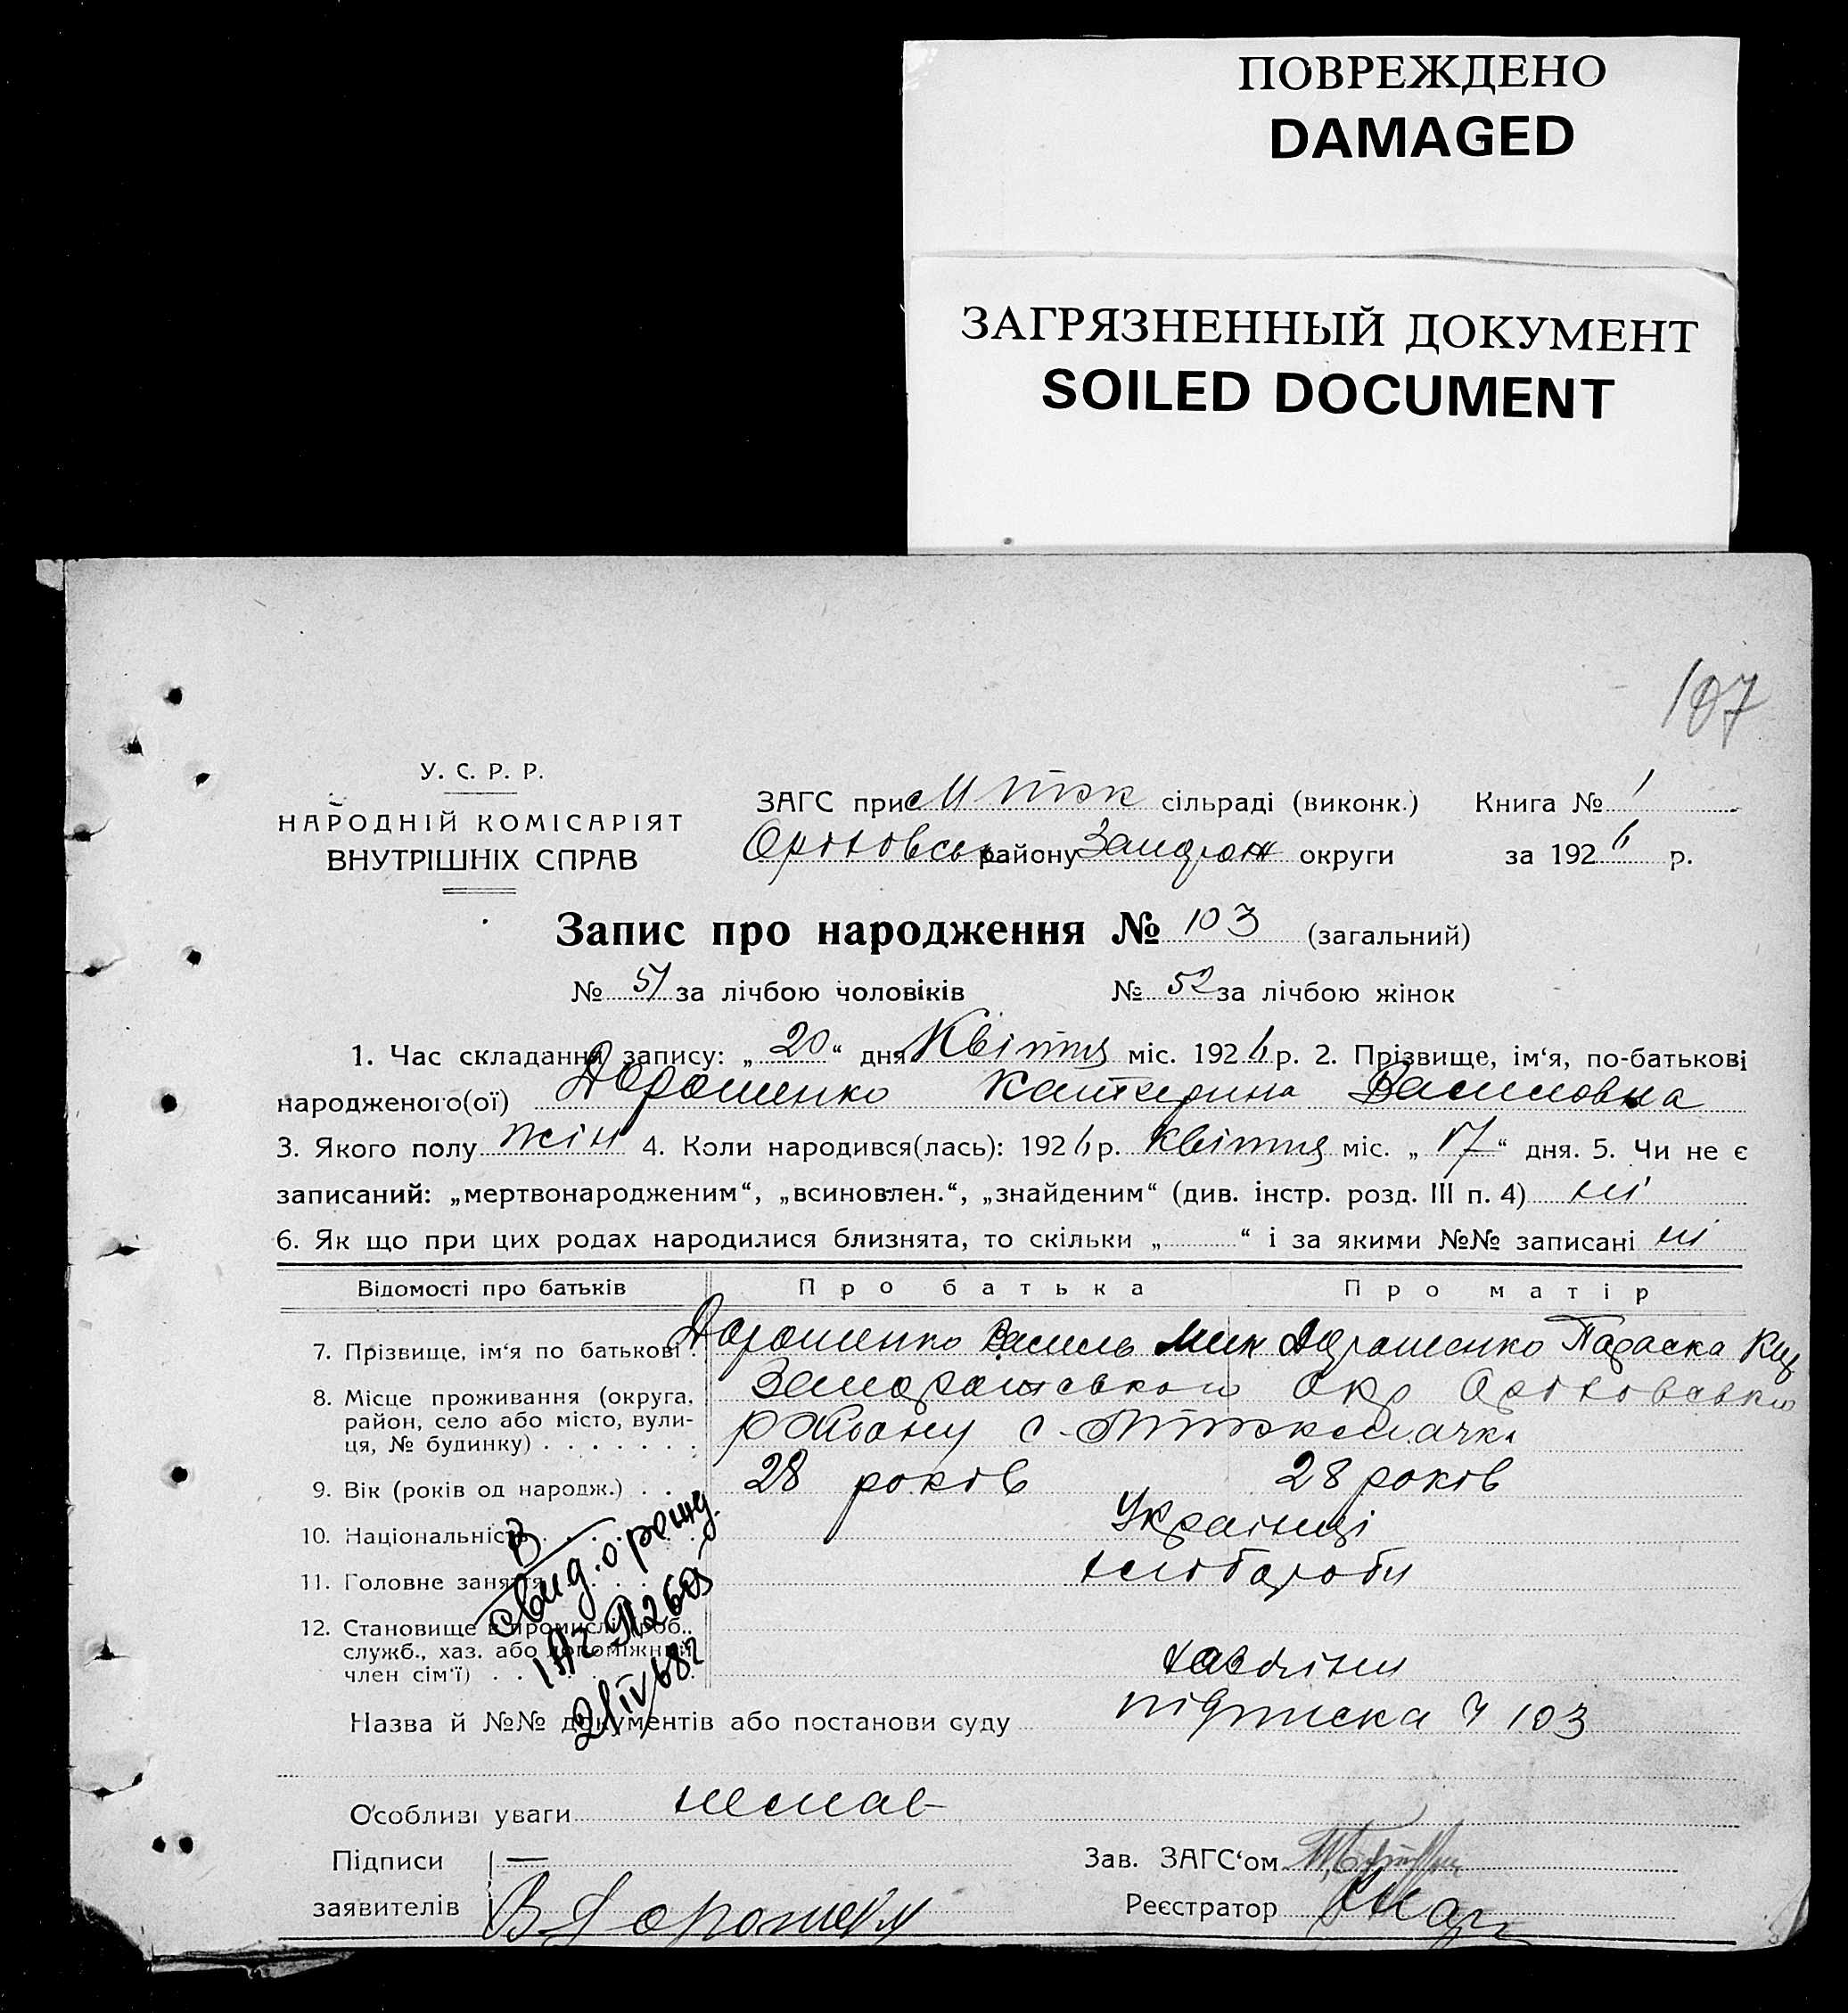 ПОВРЕЖДЕНО
DAMAGED
ЗАГРЯЗНЕННЫЙ ДОКУМЕНТ
SOILED DOCUMENT
107
У. С. Р. Р.
НАРОДНІЙ КОМІСАРІЯТ
ВНУТРІШНІХ СПРАВ
ЗАГС при М Токм сільраді (виконк.) Книга № 1
Оріховськ району Запоріж округи за 1926 р.
Запис про народження № 103 (загальний)
№ 51 за лічбою чоловіків № 52 за лічбою жінок
1. Час складання запису: „ 20 “ дня Квітня міс. 1926 р. 2. Прізвище, ім‘я, по-батькові
народженого(ої) Дорошенко Катерина Василовна
3. Якого полу жін 4. Коли народився(лась): 1926 р. квітня міс. „ 17 “ дня. 5. Чи не є
записаний: „мертвонародженим“, „всиновлен.“, „знайденим“ (див. інстр. розд. III п. 4) ні
6. Як що при цих родах народилися близнята, то скільки „ “ і за якими №№ записані ні
Відомості про батьків Про батька Про матір
7. Прізвище, ім‘я по батькові . Дорошенко Василь Мик Дорошенко Параска
8. Місце проживання (округа, район, село або місто, вулиця, № будинку) . . . . . . .
Запорожської окр Оріховськ
району с.
9. Вік (років од народж.) . . . 28 років 28 років
10. Національність Українці
11. Головне заняття хлібороби
12. Становище в промислі (роб., служб., хаз. або допоміжний член сім‘ї) . .
хазяіни
В
свид. о рожд.
21/IV 68г
Назва й №№ документів або постанови суду підписка Ч 103
Особливі уваги немає
Підписи —
заявителів В Дорошенко
Зав. ЗАГС‘ом
Реєстратор